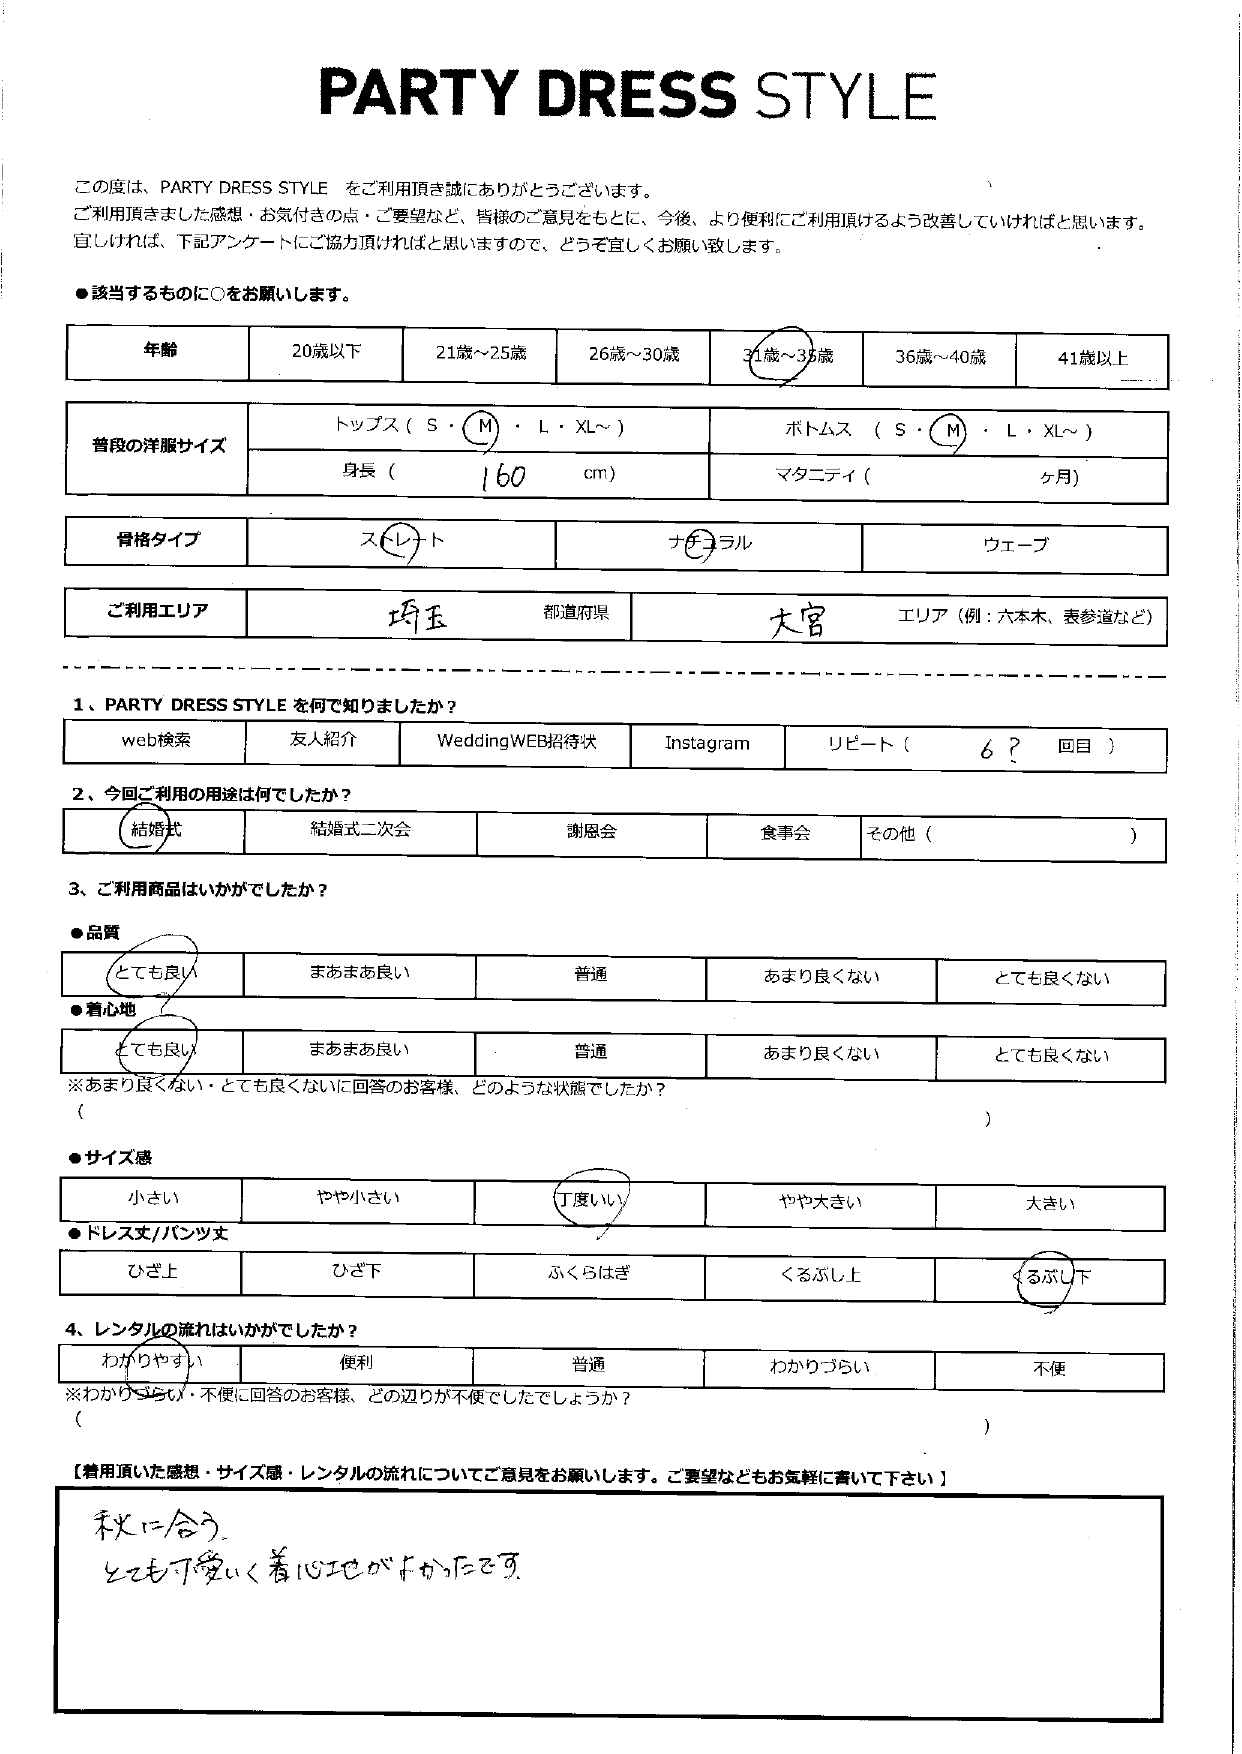 PARTY DRESS STYLE
この度は、PARTY DRESS STYLE をご利用頂き誠にありがとうございます。
ご利用頂きました感想・お気付きの点・ご要望など、皆様のご意見をもとに、今後、より便利にご利用頂けるよう改善していければと思います。
宜しければ、下記アンケートにご協力頂ければと思いますので、どうぞ宜しくお願い致します。
●該当するものに○をお願いします。
年齢 20歳以下 21歳～25歳 26歳～30歳 31歳～35歳 36歳～40歳 41歳以上
普段の洋服サイズ トップス ( S ・ M ・ L ・ XL～ ) ボトムス ( S ・ M ・ L ・ XL～ )
身長 ( 160 cm) マタニティ ( ヶ月)
骨格タイプ ストレート ナチュラル ウェーブ
ご利用エリア 埼玉 都道府県 大宮 エリア（例：六本木、表参道など）
1、PARTY DRESS STYLE を何で知りましたか？
web検索 友人紹介 WeddingWEB招待状 Instagram リピート ( 6 ? 回目 )
2、今回ご利用の用途は何でしたか？
結婚式 結婚式二次会 謝恩会 食事会 その他 ( )
3、ご利用商品はいかがでしたか？
●品質
とても良い まあまあ良い 普通 あまり良くない とても良くない
●着心地
とても良い まあまあ良い 普通 あまり良くない とても良くない
※あまり良くない・とても良くないに回答のお客様、どのような状態でしたか？
( )
●サイズ感
小さい やや小さい 丁度いい やや大きい 大きい
●ドレス丈/パンツ丈
ひざ上 ひざ下 ふくらはぎ くるぶし上 くるぶし下
4、レンタルの流れはいかがでしたか？
わかりやすい 便利 普通 わかりづらい 不便
※わかりづらい・不便に回答のお客様、どの辺りが不便でしたでしょうか？
( )
【着用頂いた感想・サイズ感・レンタルの流れについてご意見をお願いします。ご要望などもお気軽に書いて下さい】
秋に合う。
とても可愛いく着心地がよかったです。